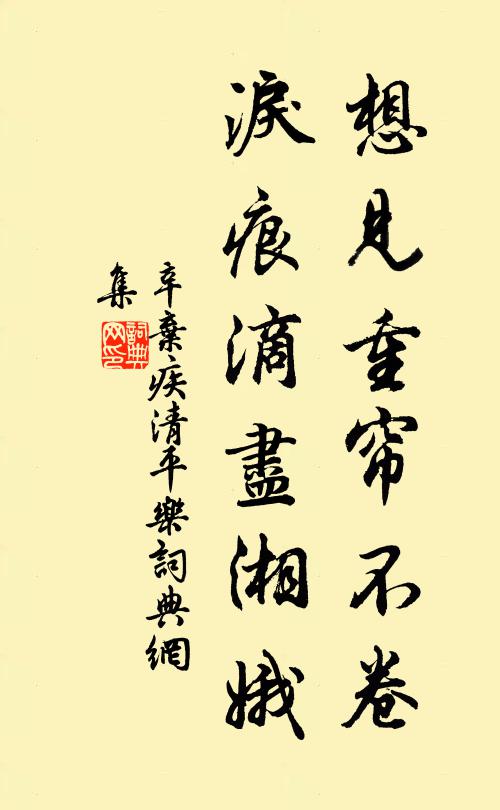 想見重帘不卷
淚痕滴盡湘娥
辛棄疾清平樂詞典網
集
詞典网印